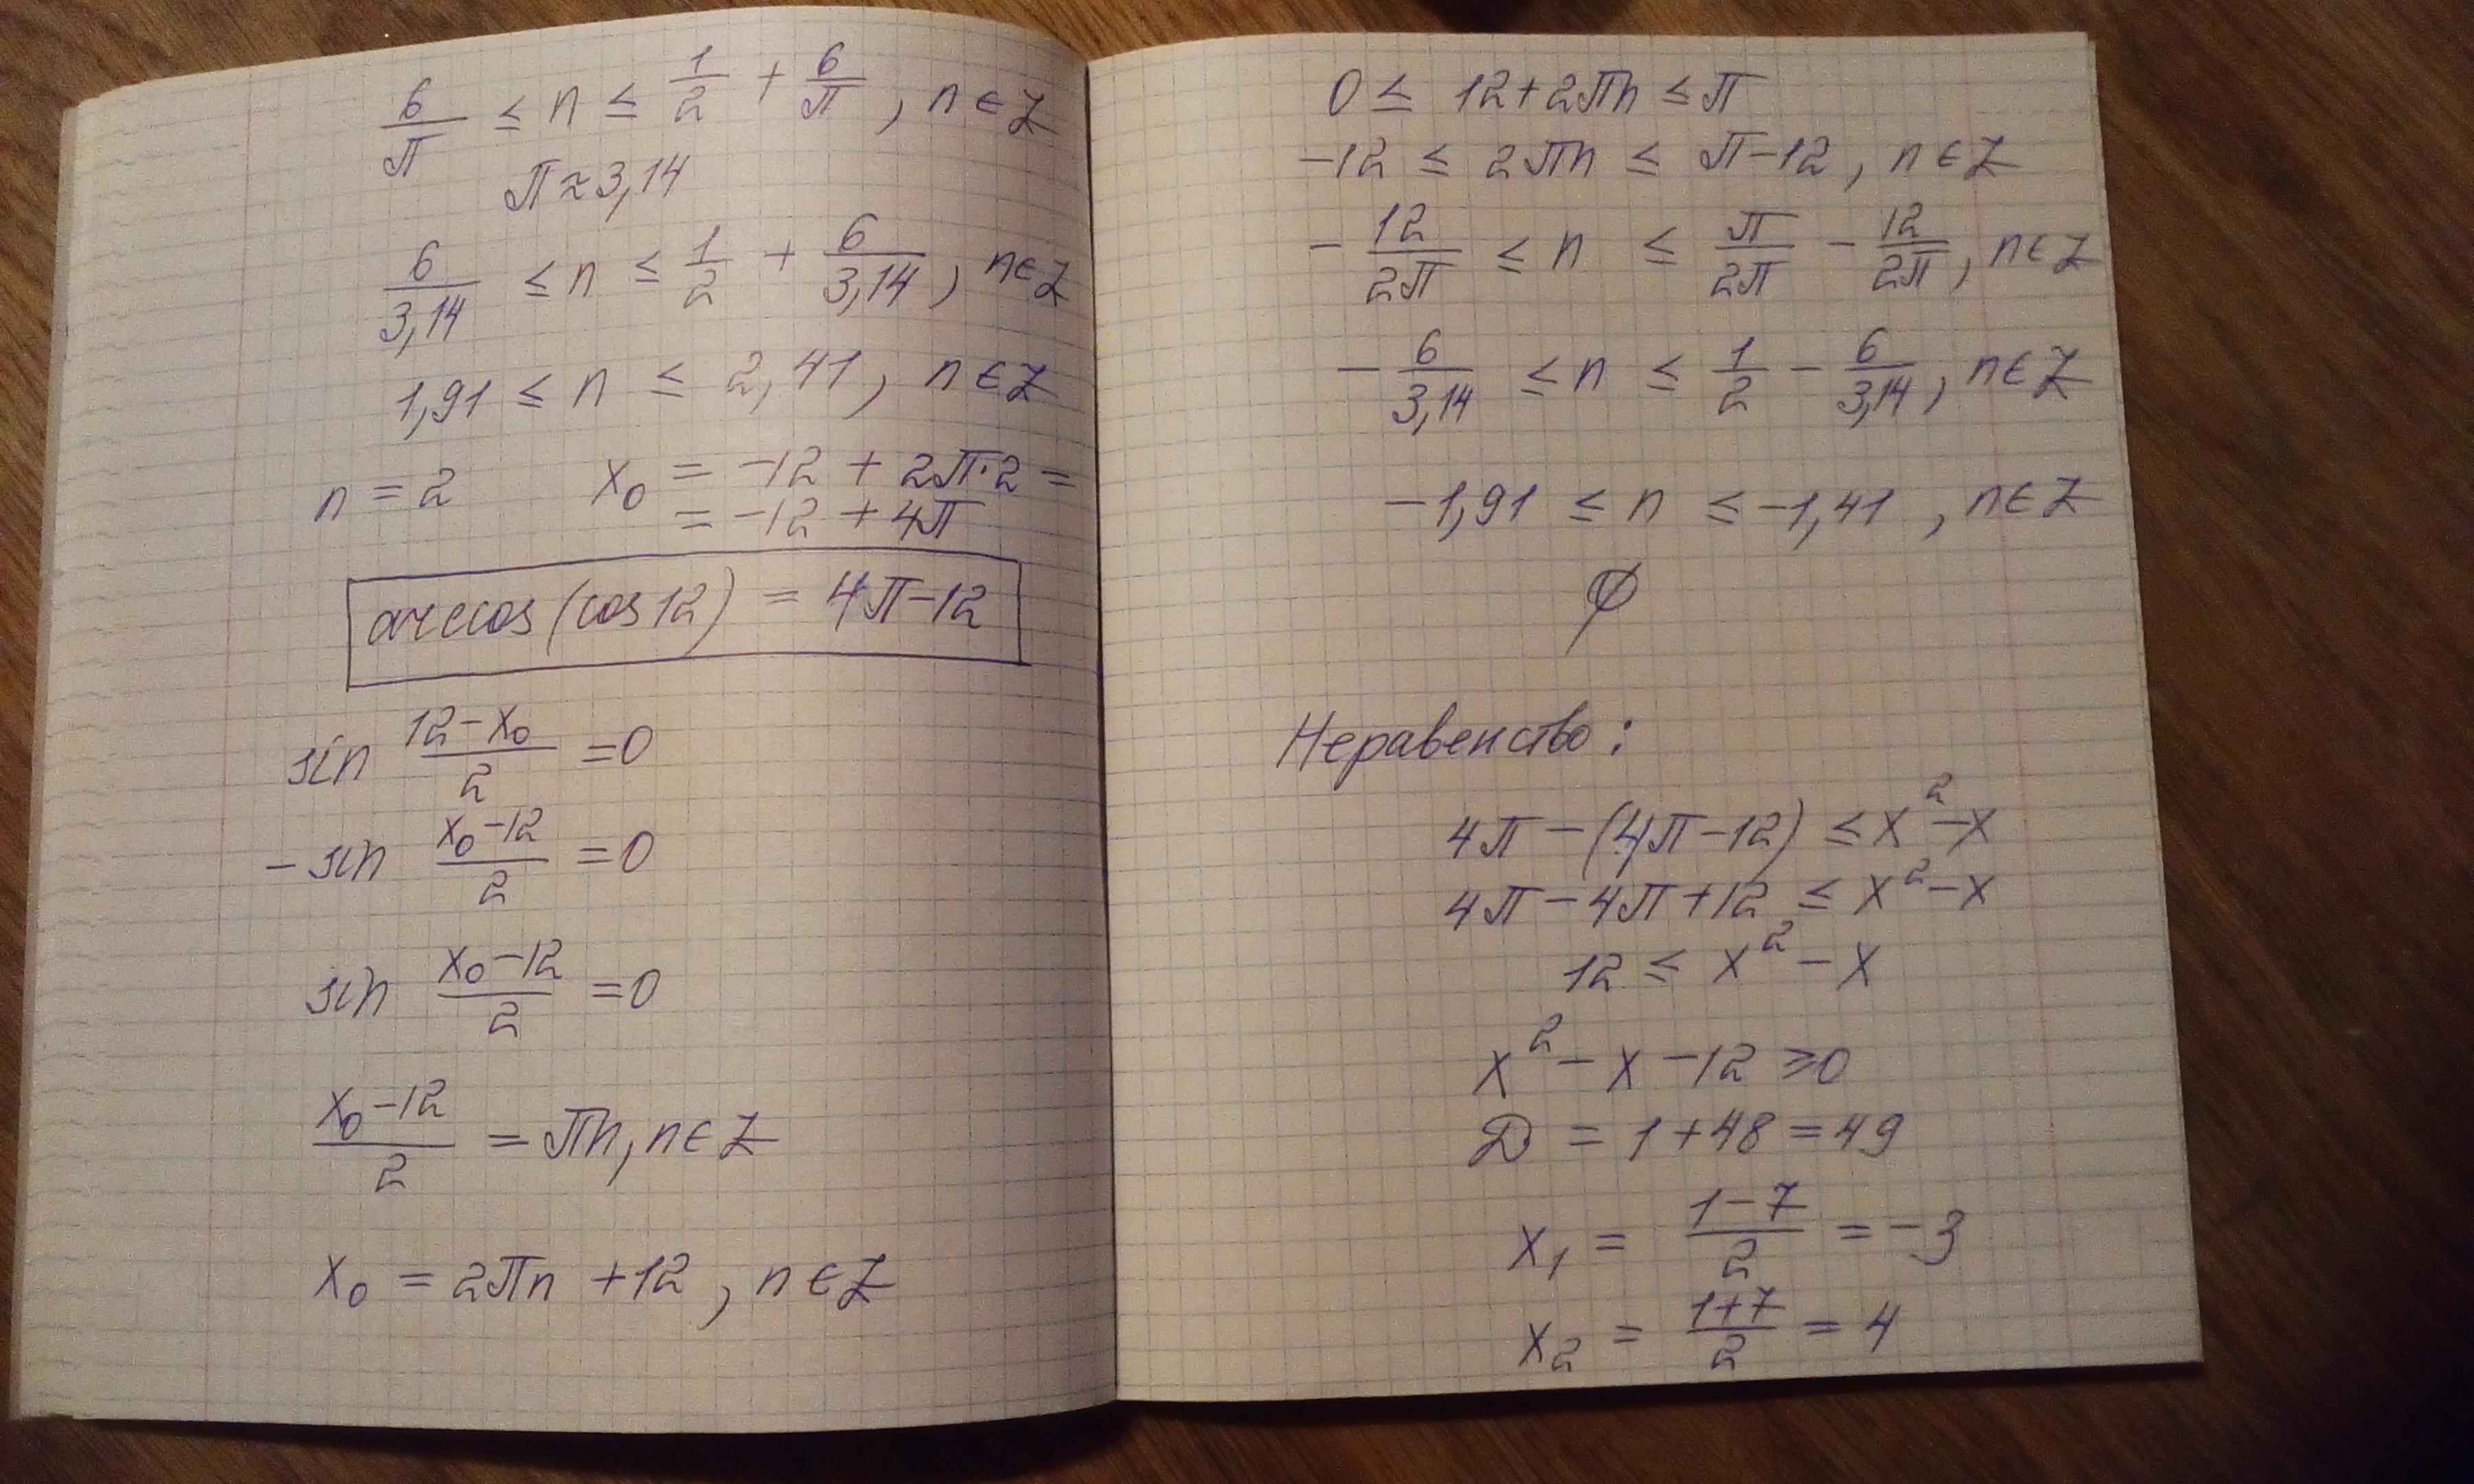 6/π ≤ n ≤ 1/2 + 6/π, n ∈ Z
π ≈ 3,14
6/3,14 ≤ n ≤ 1/2 + 6/3,14, n ∈ Z
1,91 ≤ n ≤ 2,41, n ∈ Z
n = 2 x₀ = -12 + 2π·2 =
= -12 + 4π
arccos(cos12) = 4π-12
sin (12-x₀)/2 = 0
- sin (x₀-12)/2 = 0
sin (x₀-12)/2 = 0
(x₀-12)/2 = πn, n ∈ Z
x₀ = 2πn + 12, n ∈ Z
0 ≤ 12+2πn ≤ π
-12 ≤ 2πn ≤ π-12, n ∈ Z
- 12/2π ≤ n ≤ π/2π - 12/2π, n ∈ Z
- 6/3,14 ≤ n ≤ 1/2 - 6/3,14, n ∈ Z
-1,91 ≤ n ≤ -1,41, n ∈ Z
∅
Неравенство:
4π - (4π-12) ≤ x² - x
4π - 4π + 12 ≤ x² - x
12 ≤ x² - x
x² - x - 12 ≥ 0
D = 1+48 = 49
x₁ = (1-7)/2 = -3
x₂ = (1+7)/2 = 4